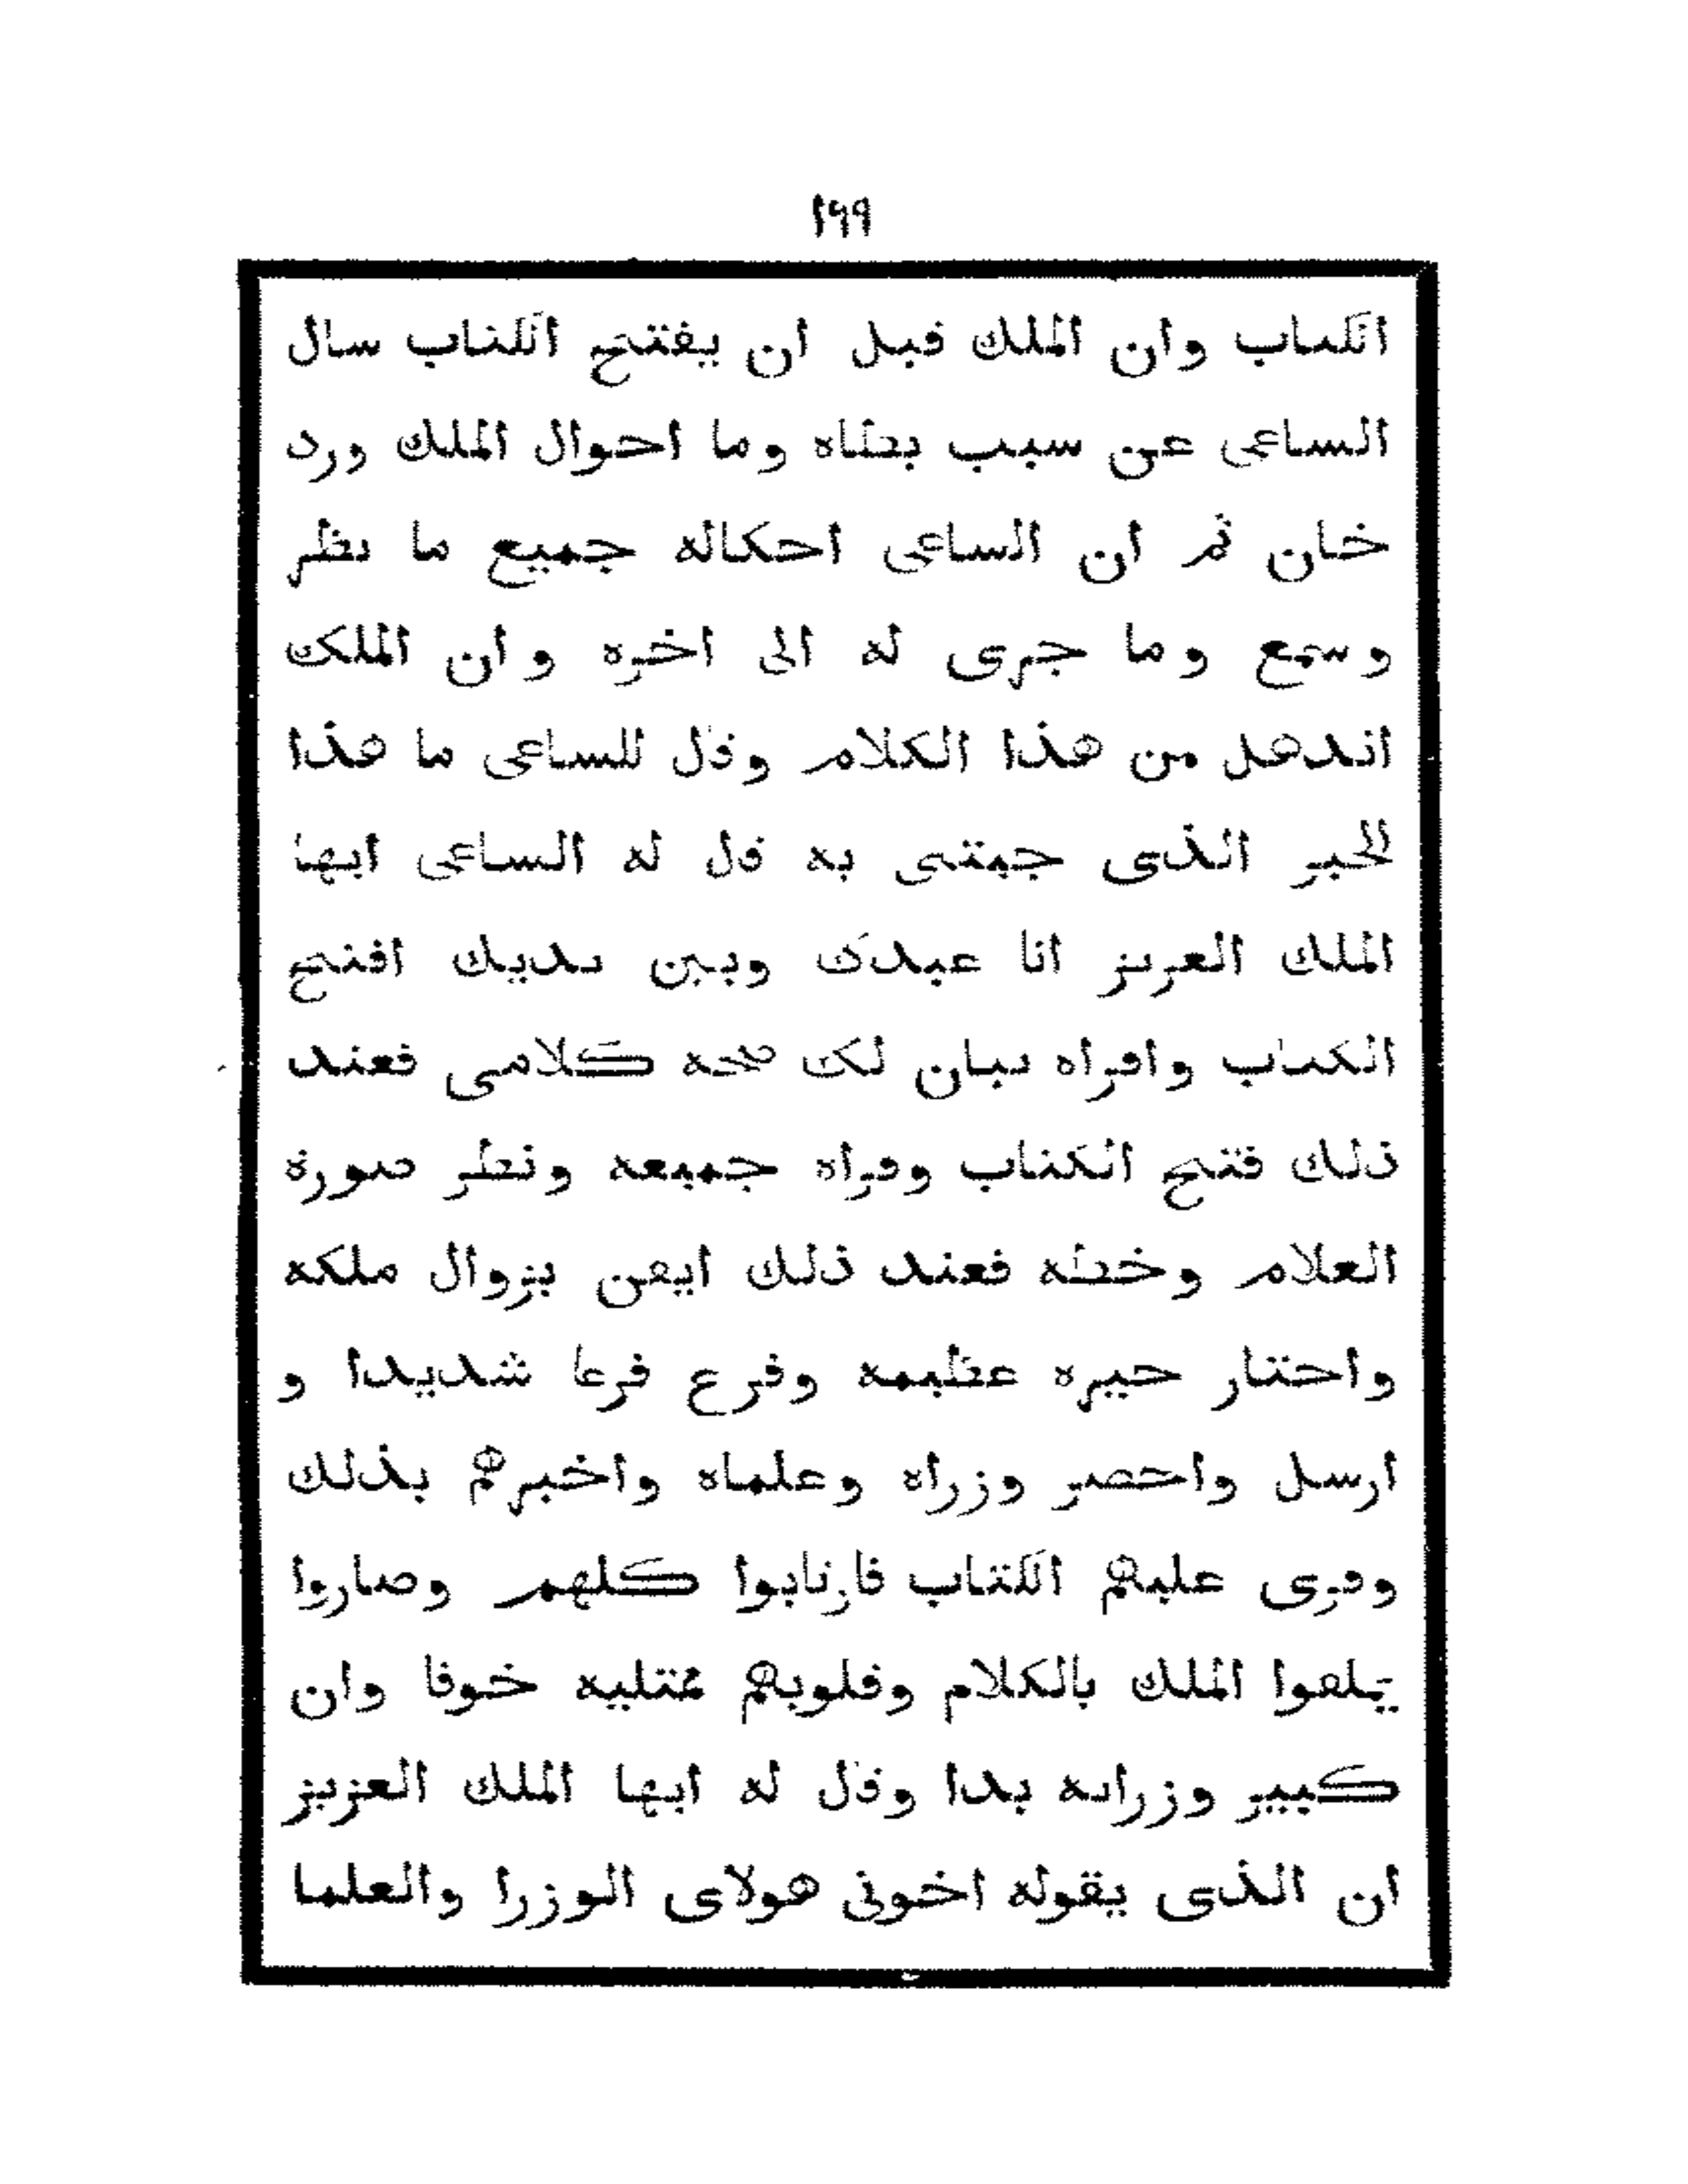 ١٩٩
الكتاب وان الملك قبل ان يفتح الكتاب سال
الساعى عن سبب بطاه وما احوال الملك ورد
خان ثم ان الساعى احكاله جميع ما نظر
وسمع وما جرى له الى اخره وان الملك
اندهل من هذا الكلام وقال للساعى ما هذا
الخبر الذى جيتنى به قال له الساعى ايها
الملك العزيز انا عبدك وبين يديك افتح
الكتاب واقراه يبان لك صحه كلامى فعند
ذلك فتح الكتاب وقراه جميعه ونظر صورة
الغلام وخطه فعند ذلك ايقن بزوال ملكه
واحتار حيره عظيمه وفزع فزعا شديدا و
ارسل واحضر وزراه وعلماه واخبرهم بذلك
وقرى عليهم الكتاب فارتابوا كلهم وصاروا
يملقوا الملك بالكلام وقلوبهم ممتليه خوفا وان
كبير وزرايه بدا وقال له ايها الملك العزيز
ان الذى يقوله اخوتى هولاى الوزرا والعلما